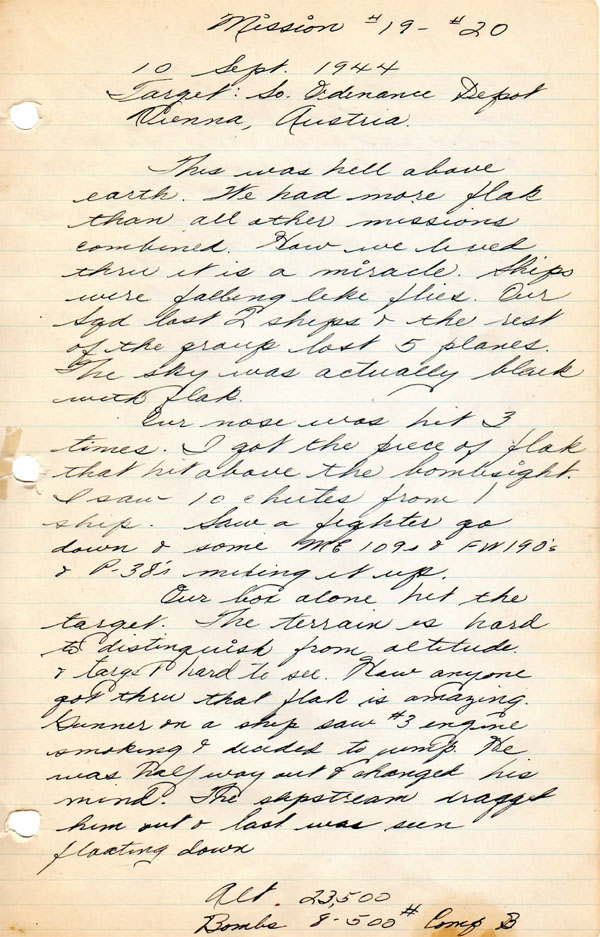 Mission #19- #20
10 Sept. 1944
Target: So. Ordinance Depot
Vienna, Austria.
This was hell above
earth. We had more flak
than all other missions
combined. How we lived
thru it is a miracle. Ships
were falling like flies. Our
Sqd lost 2 ships & the rest
of the group lost 5 planes.
The sky was actually black
with flak.
Our nose was hit 3
times. I got the piece of flak
that hit above the bombsight.
I saw 10 chutes from 1
ship. Saw a fighter go
down & some ME 109s & FW190's
& P-38's mixing it up.
Our box alone hit the
target. The terrain is hard
to distinguish from altitude.
& target hard to see. How anyone
got thru that flak is amazing.
Gunner on a ship saw #3 engine
smoking & decided to jump. He
was half way out & changed his
mind. The slipstream dragged
him out & last was seen
floating down
Alt. 23,500
Bombs 8-500# Comp B